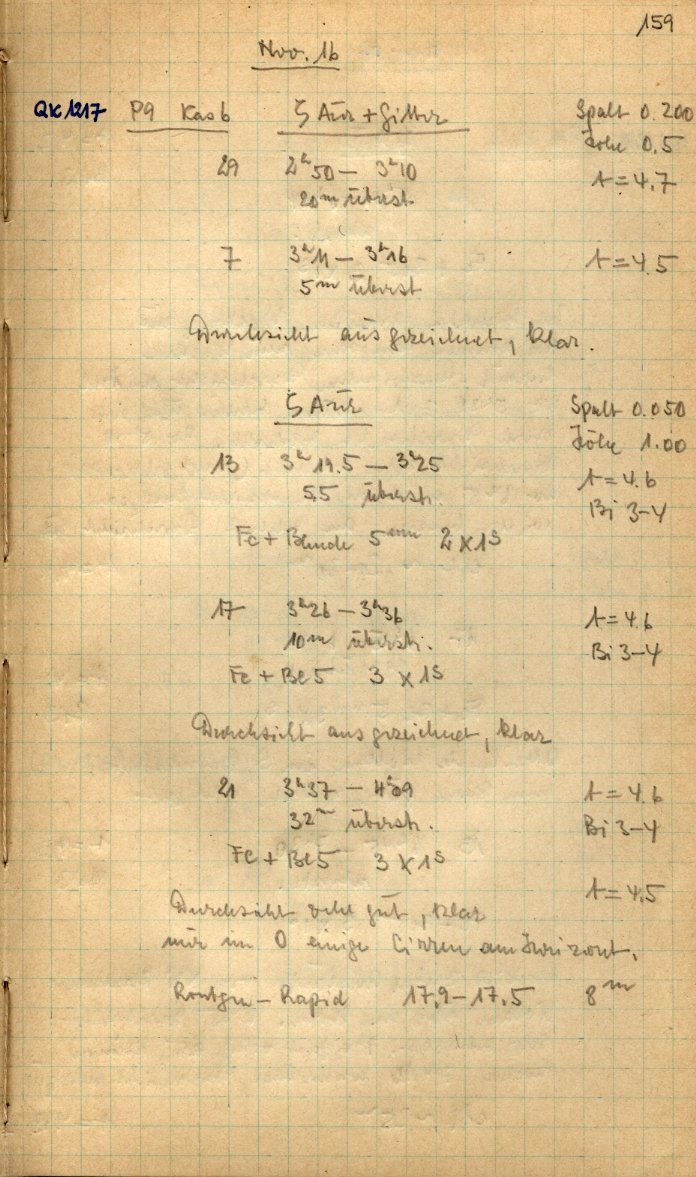 159
Nov. 16
QK 1217 P9 Kas 6 ζ Aur + Gitter Spalt 0.200
Höhe 0.5
29 2ʰ50 — 3ʰ10 t = 4.7
20ᵐ überst.
7 3ʰ11 — 3ʰ16 t = 4.5
5ᵐ überst
Durchsicht ausgezeichnet, klar.
ζ Aur Spalt 0.050
Höhe 1.00
13 3ʰ19.5 — 3ʰ25 t = 4.6
5.5 überstr. Bi 3-4
Fe + Blende 5ᵐᵐ 2 x 1ˢ
17 3ʰ26 — 3ʰ36 t = 4.6
10ᵐ überstr. Bi 3-4
Fe + Bl 5 3 x 1ˢ
Durchsicht ausgezeichnet, klar
21 3ʰ37 — 4ʰ09 t = 4.6
32ᵐ überstr. Bi 3-4
Fe + Bl 5 3 x 1ˢ
t = 4.5
Durchsicht sehr gut, klar
nur im O einige Cirren am Horizont.
Röntgen - Rapid 17,9 - 17.5 8ᵐ